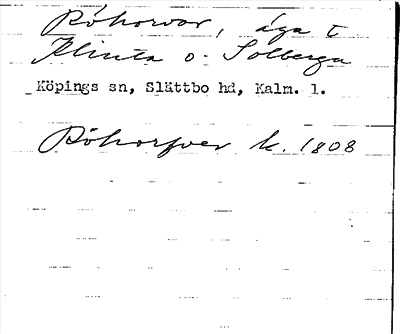 Röhorvor, äga t
Klinta o. Solberga
Köpings sn, Slättbo hd, Kalm. l.
Röhorfvor k. 1808